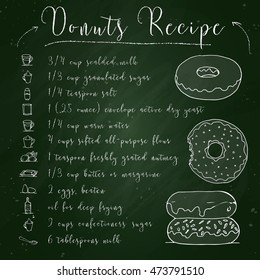 Donuts Recipe
3/4 cup scalded milk
1/3 cup granulated sugar
1/4 teaspoon salt
1 (.25 ounce) envelope active dry yeast
1/4 cup warm water
4 cups sifted all-purpose flour
1 teaspoon freshly grated nutmeg
1/3 cup butter or margarine
2 eggs, beaten
oil for deep frying
3 cups confectioners sugar
6 tablespoons milk
shutterstock.com · 473791510